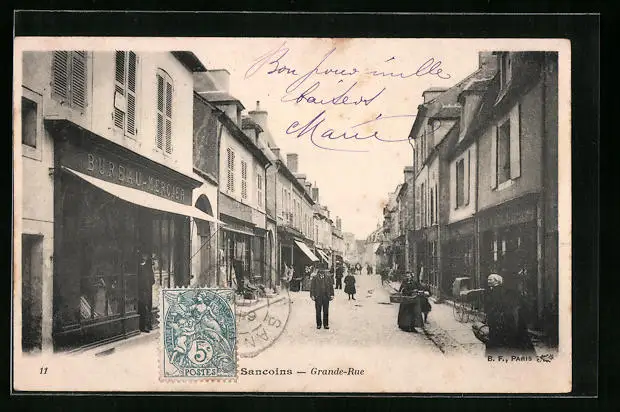 Bon jour mille
baisers
Marie
BUREAU-MERCIER
POSTES
5c
SAN
11
Sancoins — Grande-Rue
B. F., PARIS